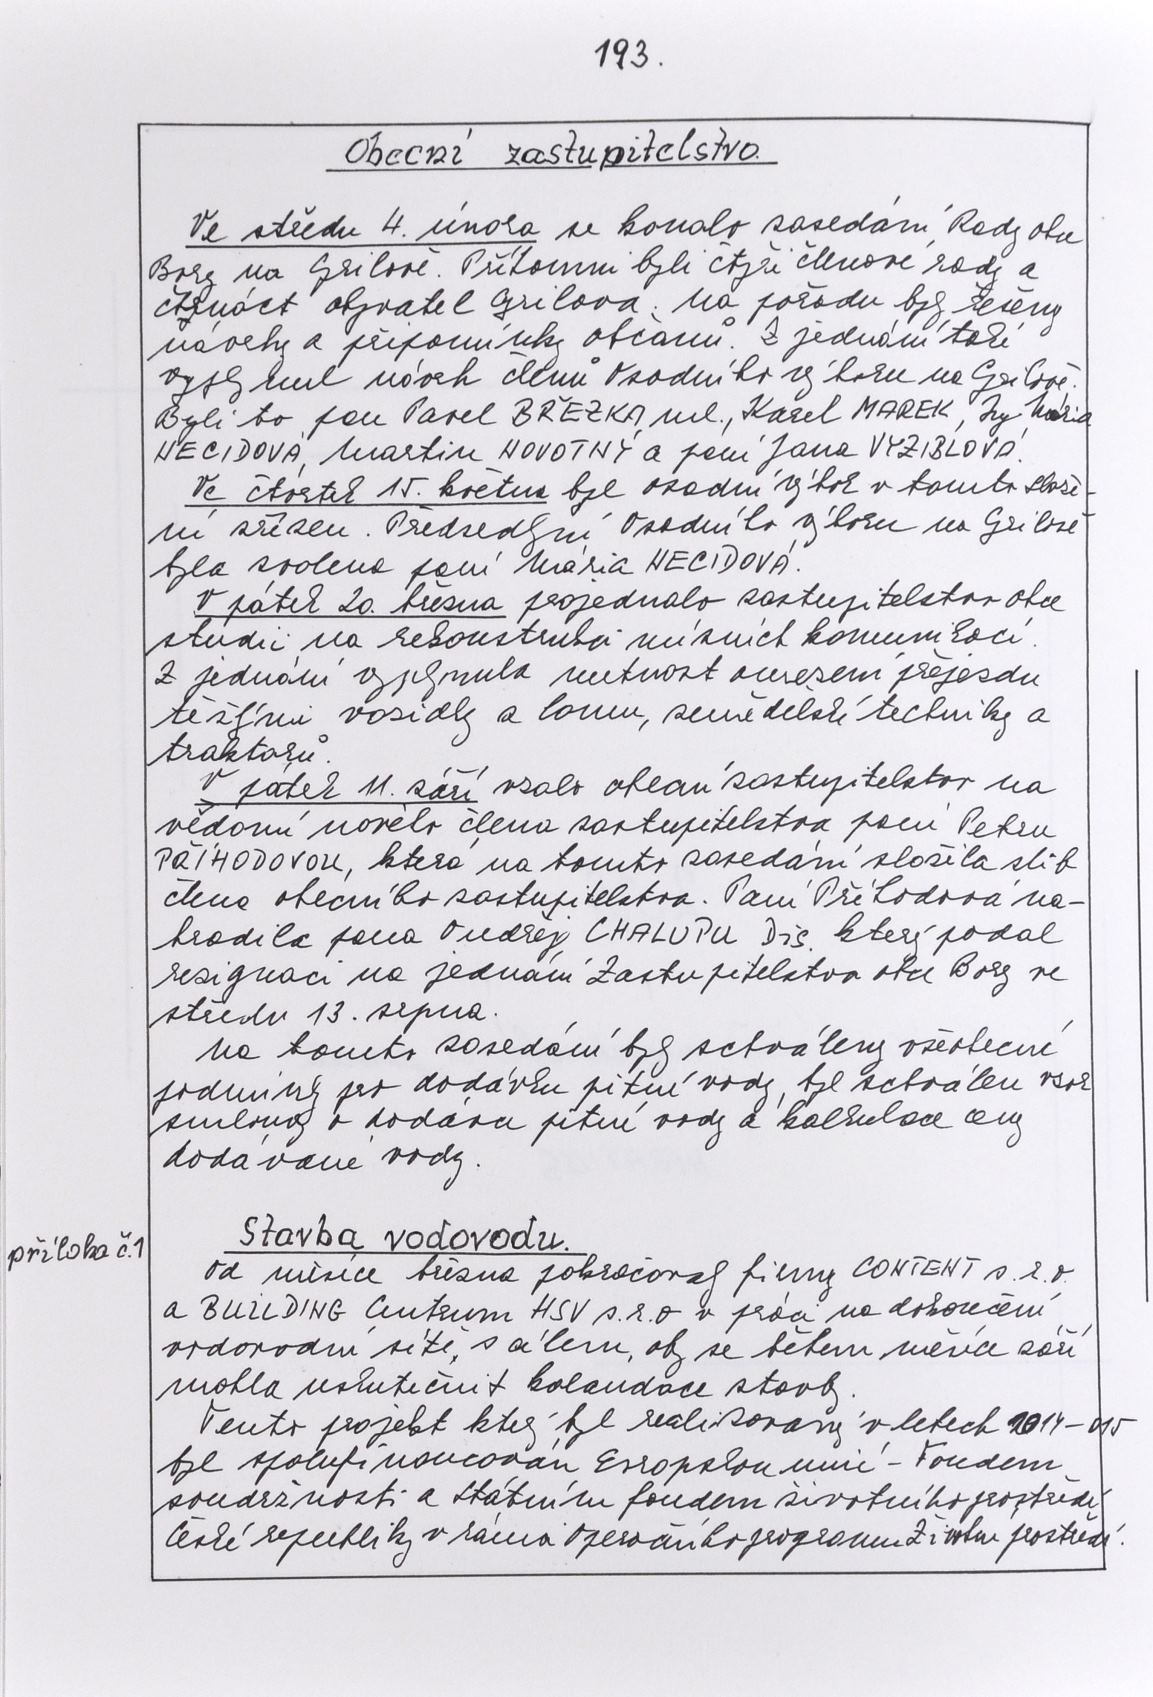 193.
Obecní zastupitelstvo.
Ve středu 4. února se konalo zasedání Rady obce
Bory na Grilově. Přítomni byli čtyři členové rady a
čtrnáct obyvatel Grilova. Na pořadu byly řešeny
návrhy a připomínky občanů. Z jednání také
vyplynul návrh členů Osadního výboru na Grilově.
Byli to pan Pavel BŘEZKA, ml., Karel MAREK, Ing. Mária
NECIDOVÁ, Martin NOVOTNÝ a paní Jana VYZIBLOVÁ.
Ve čtvrtek 15. května byl osadní výbor v tomto slože-
ní zřízen. Předsedkyní Osadního výboru na Grilově
byla zvolena paní Mária NECIDOVÁ.
V pátek 20. března projednalo zastupitelstvo obce
studii na rekonstrukci místních komunikací.
Z jednání vyplynula nutnost omezení přejezdu
těžkými vozidly z lomu, zemědělské techniky a
traktorů.
V pátek 11. září vzalo obecní zastupitelstvo na
vědomí nového člena zastupitelstva paní Petru
PŘÍHODOVOU, která na tomto zasedání složila slib
člena obecního zastupitelstva. Paní Příhodová na-
hradila pana Ondřej CHALUPU Dis. který podal
rezignaci na jednání Zastupitelstva obce Bory ve
středu 13. srpna.
Na tomto zasedání byly schváleny všeobecné
podmínky pro dodávku pitné vody, byl schválen vzor
smlouvy o dodávce pitné vody a kalkulace ceny
dodávané vody.
Stavba vodovodu.
příloha č.1
Od měsíce března pokračovaly firmy CONTENT s.r.o.
a BUILDING Centrum HSV s.r.o v práci na dokončení
vodovodní sítě, s cílem, aby se během měsíce září
mohla uskutečnit kolaudace stavby.
Tento projekt který byl realizovaný v letech 2014-015
byl spolufinancován Evropskou unií - Fondem
soudržnosti a Státním fondem životního prostředí
České republiky v rámci Operačního programu Životní prostředí.